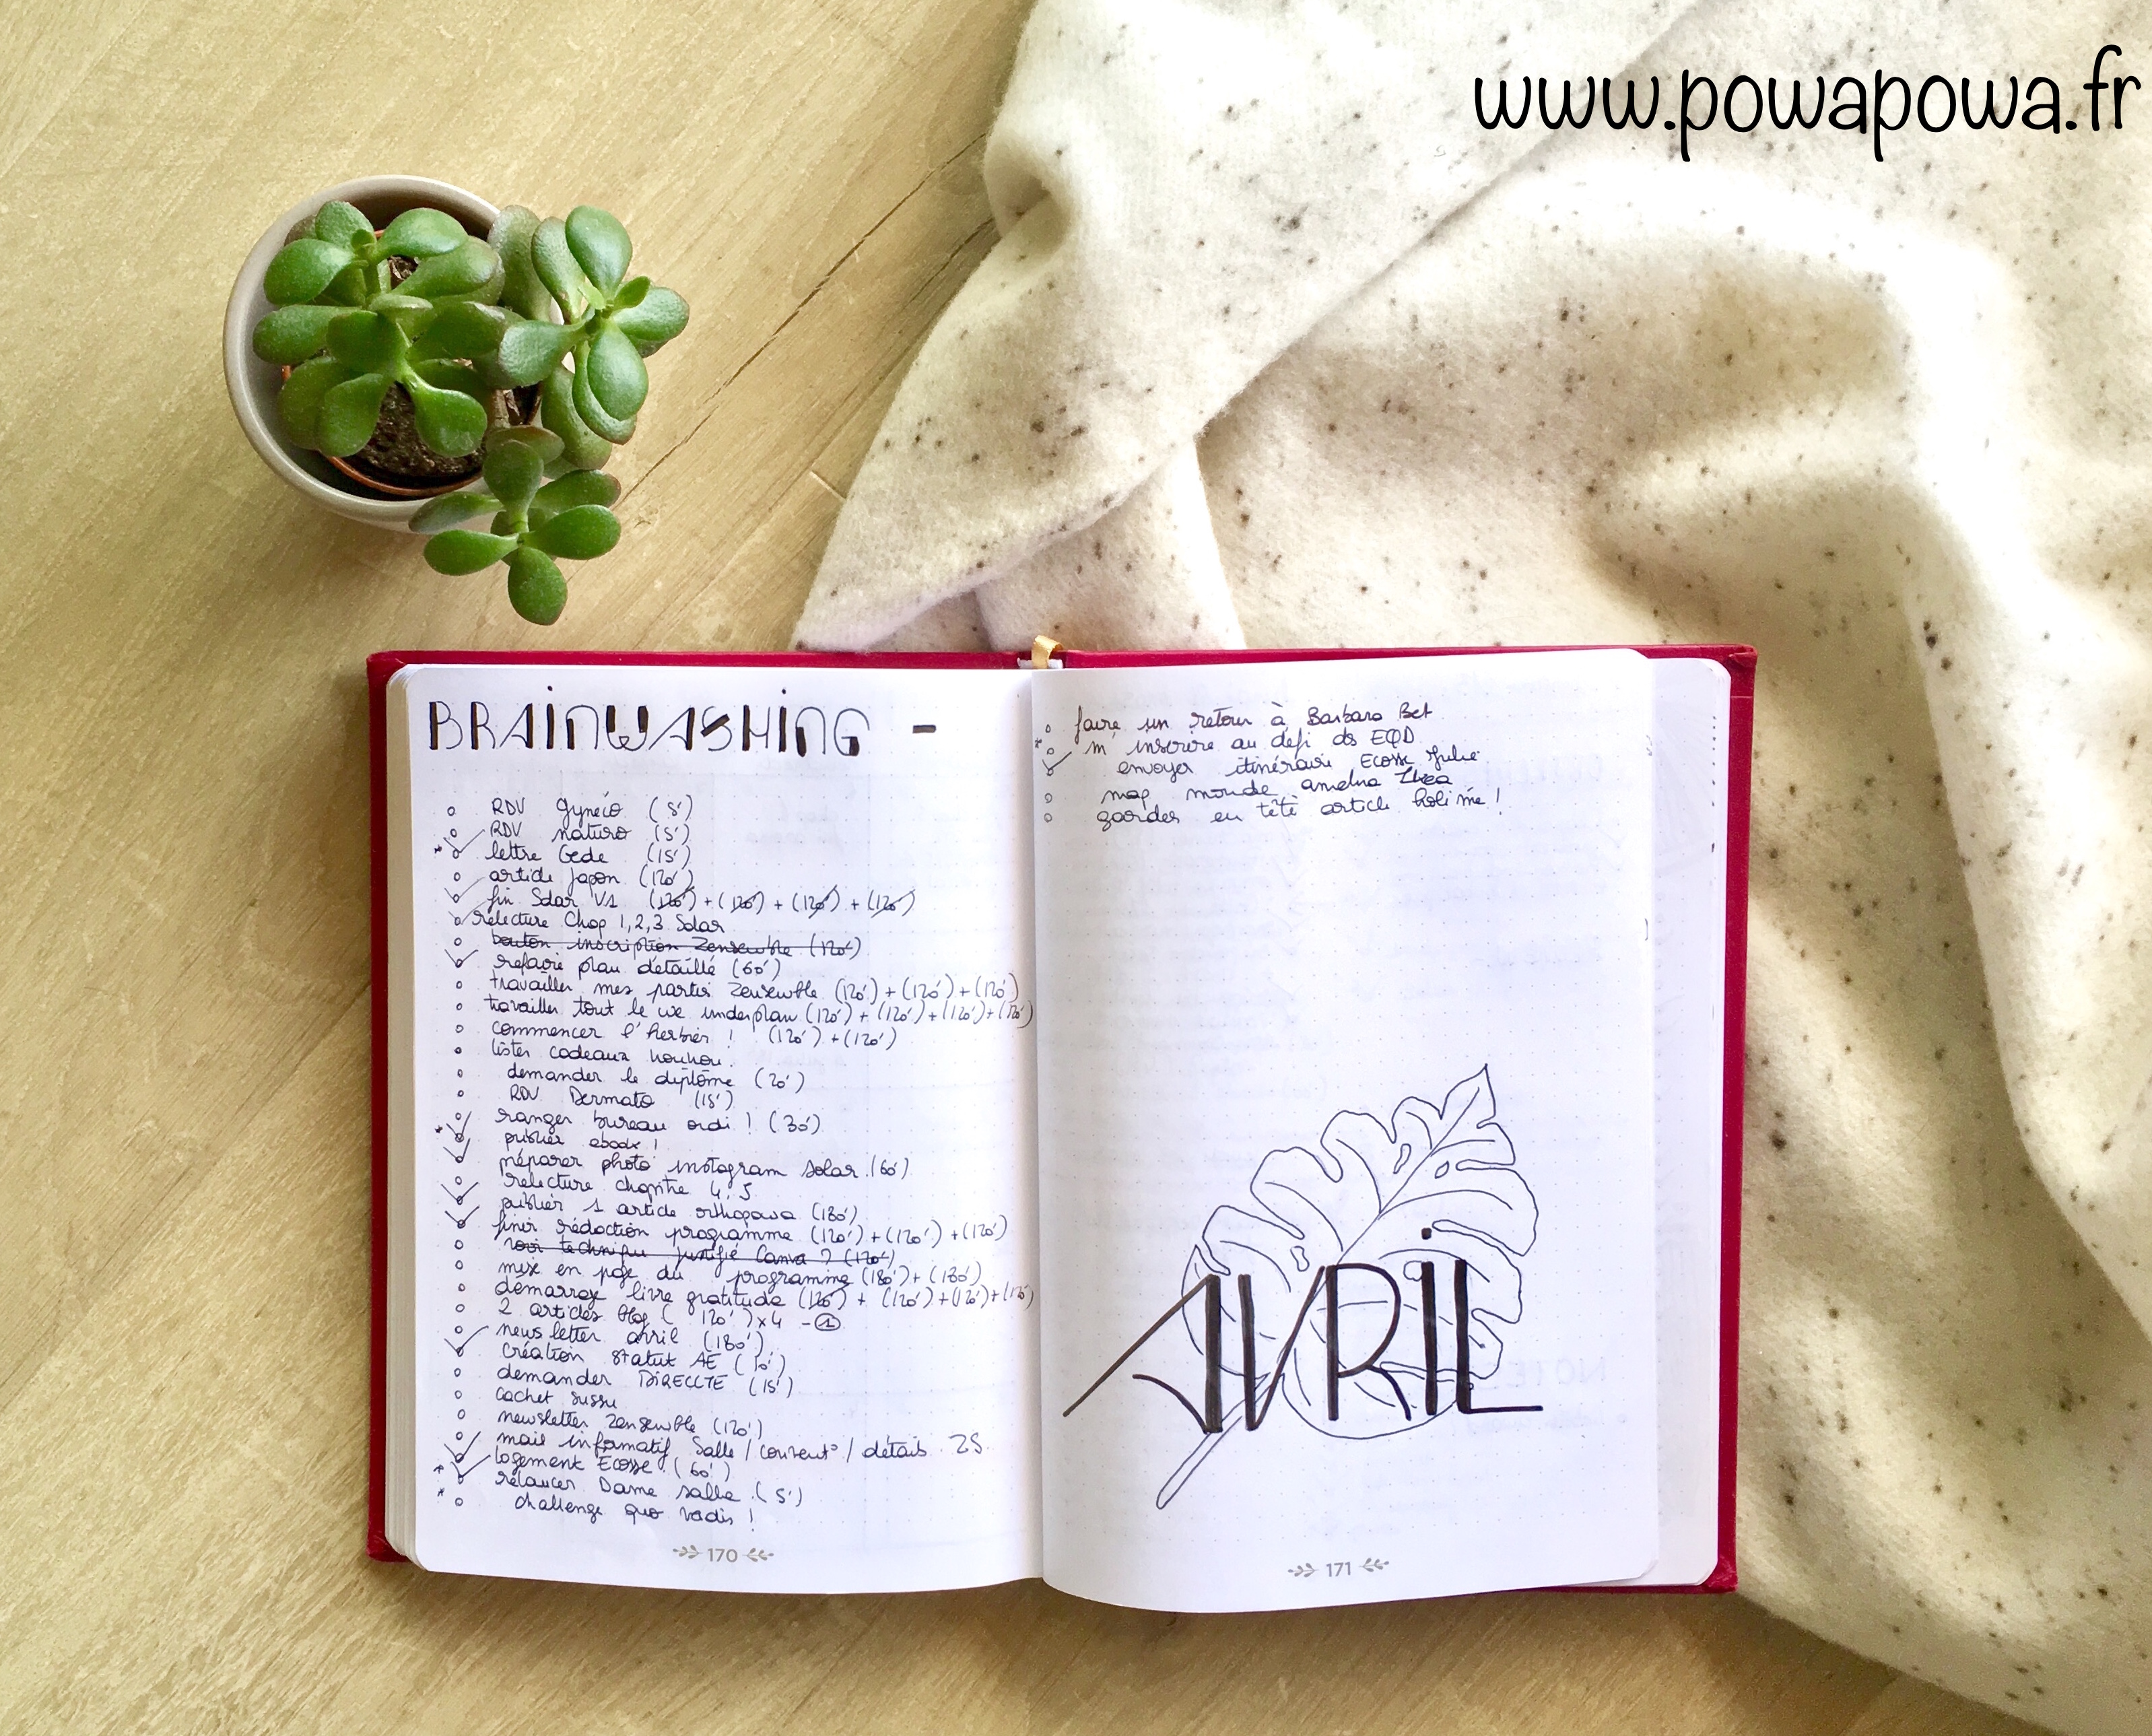 www.powapowa.fr
BRAINWASHING -
RDV gynéco (5')
RDV naturo (5')
lettre Gede (15')
article Japon (120')
fin Solar V1 (120') + (120') + (120') + (120')
relecture Chap 1,2,3 Solar
bouton inscription Zensemble (120')
refaire plan détaillé (60')
travailler mes parties Zensemble (120') + (120') + (120')
travailler tout le we underplan (120') + (120') + (120') + (120')
commencer l'herbier ! (120') + (120')
lister cadeaux
demander le diplôme (20')
RDV Dermato (15')
ranger bureau ordi ! (30')
publier ebook !
préparer photo instagram solar (60')
relecture chapitre 4, 5
publier 1 article orthopowa (180')
finir rédaction programme (120') + (120') + (120')
voir technique justifié Canva ? (120')
mise en page du programme (180') + (180')
démarrage livre gratitude (120') + (120') + (120') + (120')
2 articles blog (120') x4 - ①
newsletter avril (180')
création statut AE
demander DIRECCTE (15')
cachet
newsletter Zensemble (120')
mail informatif Salle / / détails
logement Ecosse (60')
relancer Dame salle (5')
challenge quo vadis !
170
faire un retour à Barbara Bet
m'inscrire au défi ds EQD
envoyer itinéraire Ecosse Julie
map monde
garder en tête article !
AVRIL
171